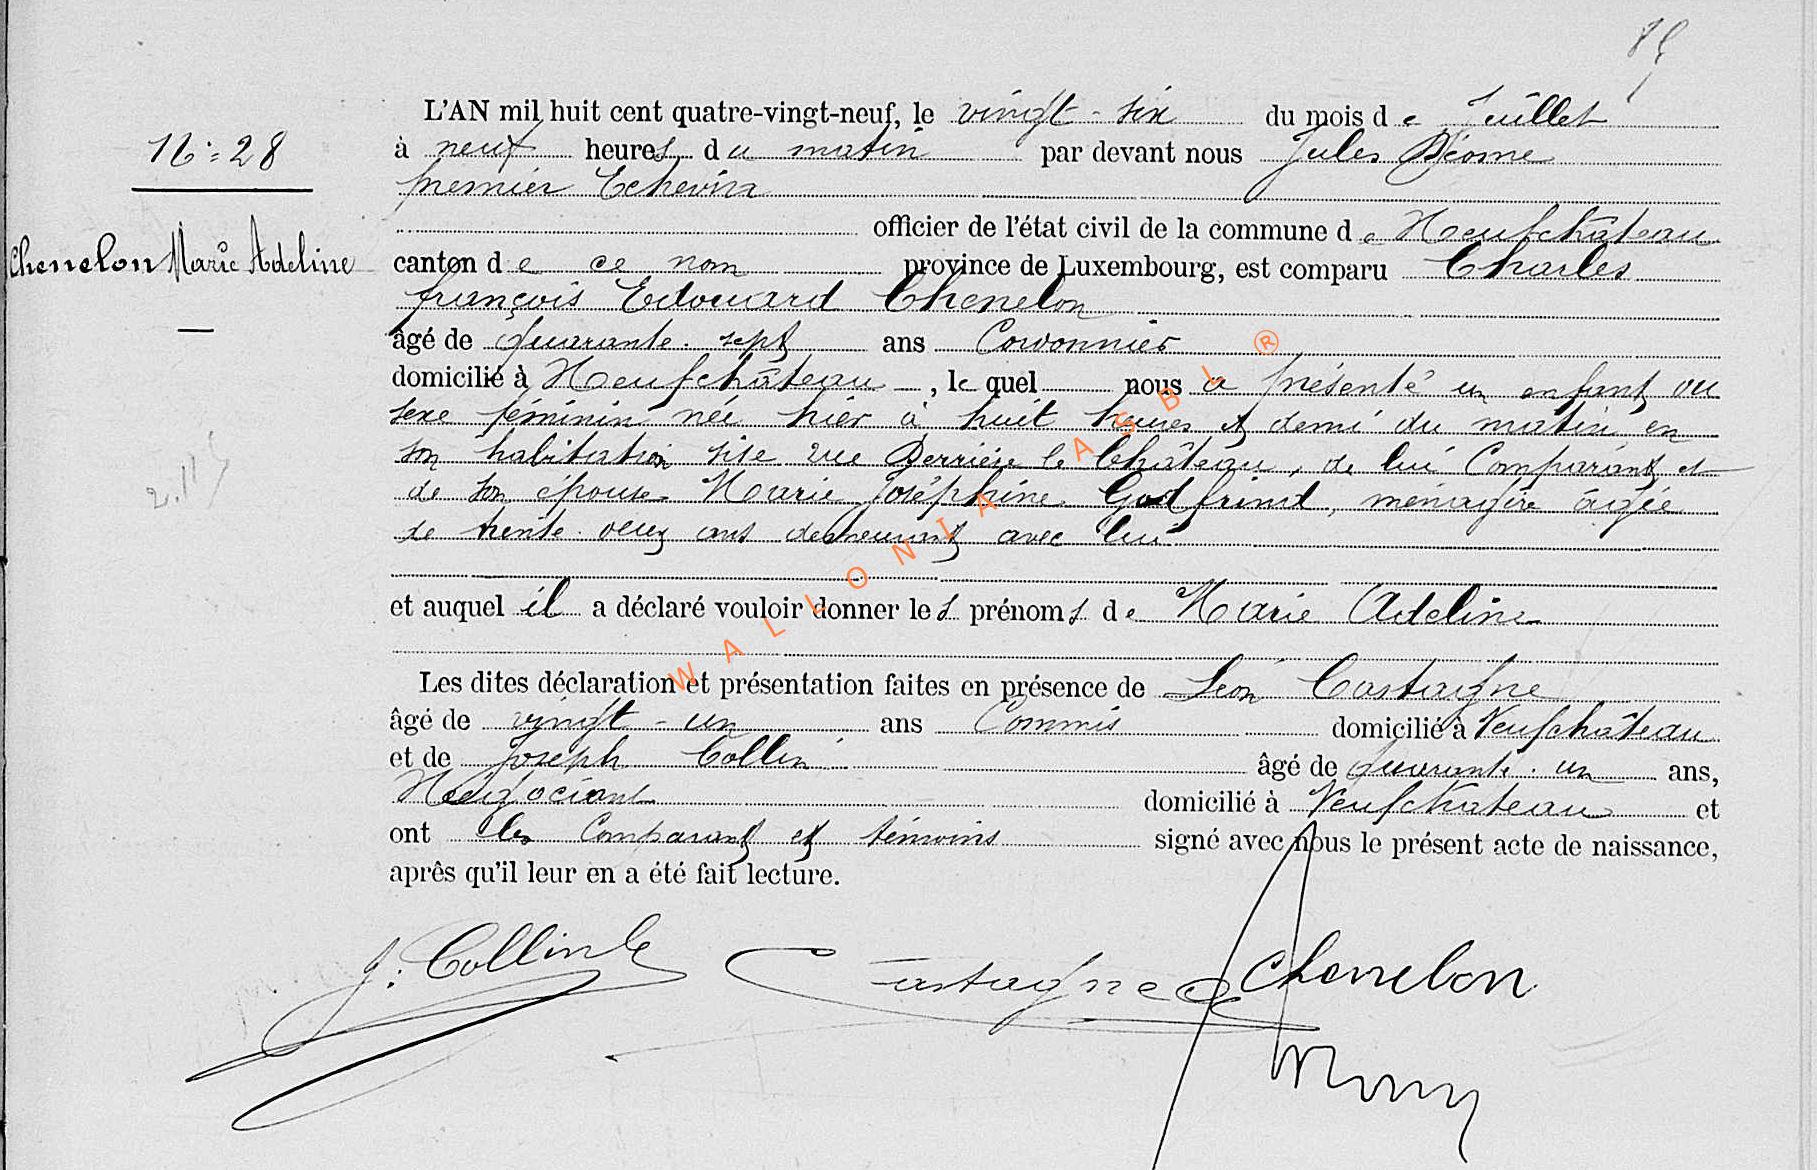 85
L'AN mil huit cent quatre-vingt-neuf, le vingt-six du mois de Juillet
N° 28
à neuf heures du matin par devant nous Jules
premier Echevin
officier de l'état civil de la commune de Neufchâteau
Chenelon Marie Adeline
canton de ce nom province de Luxembourg, est comparu Charles
françois Edouard Chenelon
âgé de quarante-sept ans Cordonnier
domicilié à Neufchâteau, le quel nous a présenté un enfant du
sexe féminin née hier à huit heures et demi du matin en
son habitation sise rue Derrière le Château, de lui Comparant et
de son épouse Marie Joséphine Godfrind, ménagère âgée
de trente-deux ans demeurant avec lui
et auquel il a déclaré vouloir donner les prénoms de Marie Adeline
Les dites déclaration et présentation faites en présence de Léon Castaigne
âgé de vingt-un ans Commis domicilié à Neufchâteau
et de Joseph Collin âgé de quarante-un ans,
Négociant domicilié à Neufchateau et
ont les Comparant et témoins signé avec nous le présent acte de naissance,
après qu'il leur en a été fait lecture.
J. Collin Castagne Chenelon
WALLONIA ASBL ®